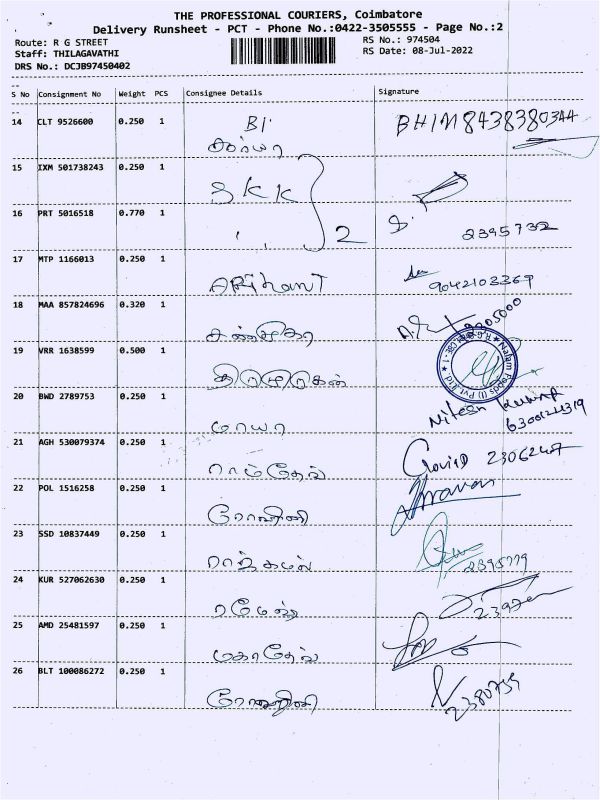 THE PROFESSIONAL COURIERS, Coimbatore
Delivery Runsheet - PCT - Phone No.:0422-3505555 - Page No.:2
Route: R G STREET
RS No.: 974504
Staff: THILAGAVATHI
RS Date: 08-Jul-2022
DRS No.: DCJB97450402
S No Consignment No Weight PCS Consignee Details Signature
14 CLT 9526600 0.250 1 BHIM 8438380344
15 IXM 501738243 0.250 1 SKK
16 PRT 5016518 0.770 1 " } 2 2395732
17 MTP 1166013 0.250 1 ARihanT 9042103367
18 MAA 857824696 0.320 1
19 VRR 1638599 0.500 1 திருமுருகன் Nalam Foods (I) Pvt Ltd
20 BWD 2789753 0.250 1 மாயா Nitesh Kumar
21 AGH 530079374 0.250 1 ராம்தேவ் 2306247
22 POL 1516258 0.250 1 ரோஹினி
23 SSD 10837449 0.250 1 ராஜ்கமல் 2395779
24 KUR 527062630 0.250 1 ரமேஷ்
25 AMD 25481597 0.250 1 மகாதேவ்
26 BLT 100086272 0.250 1 ரோஹினி 2380755